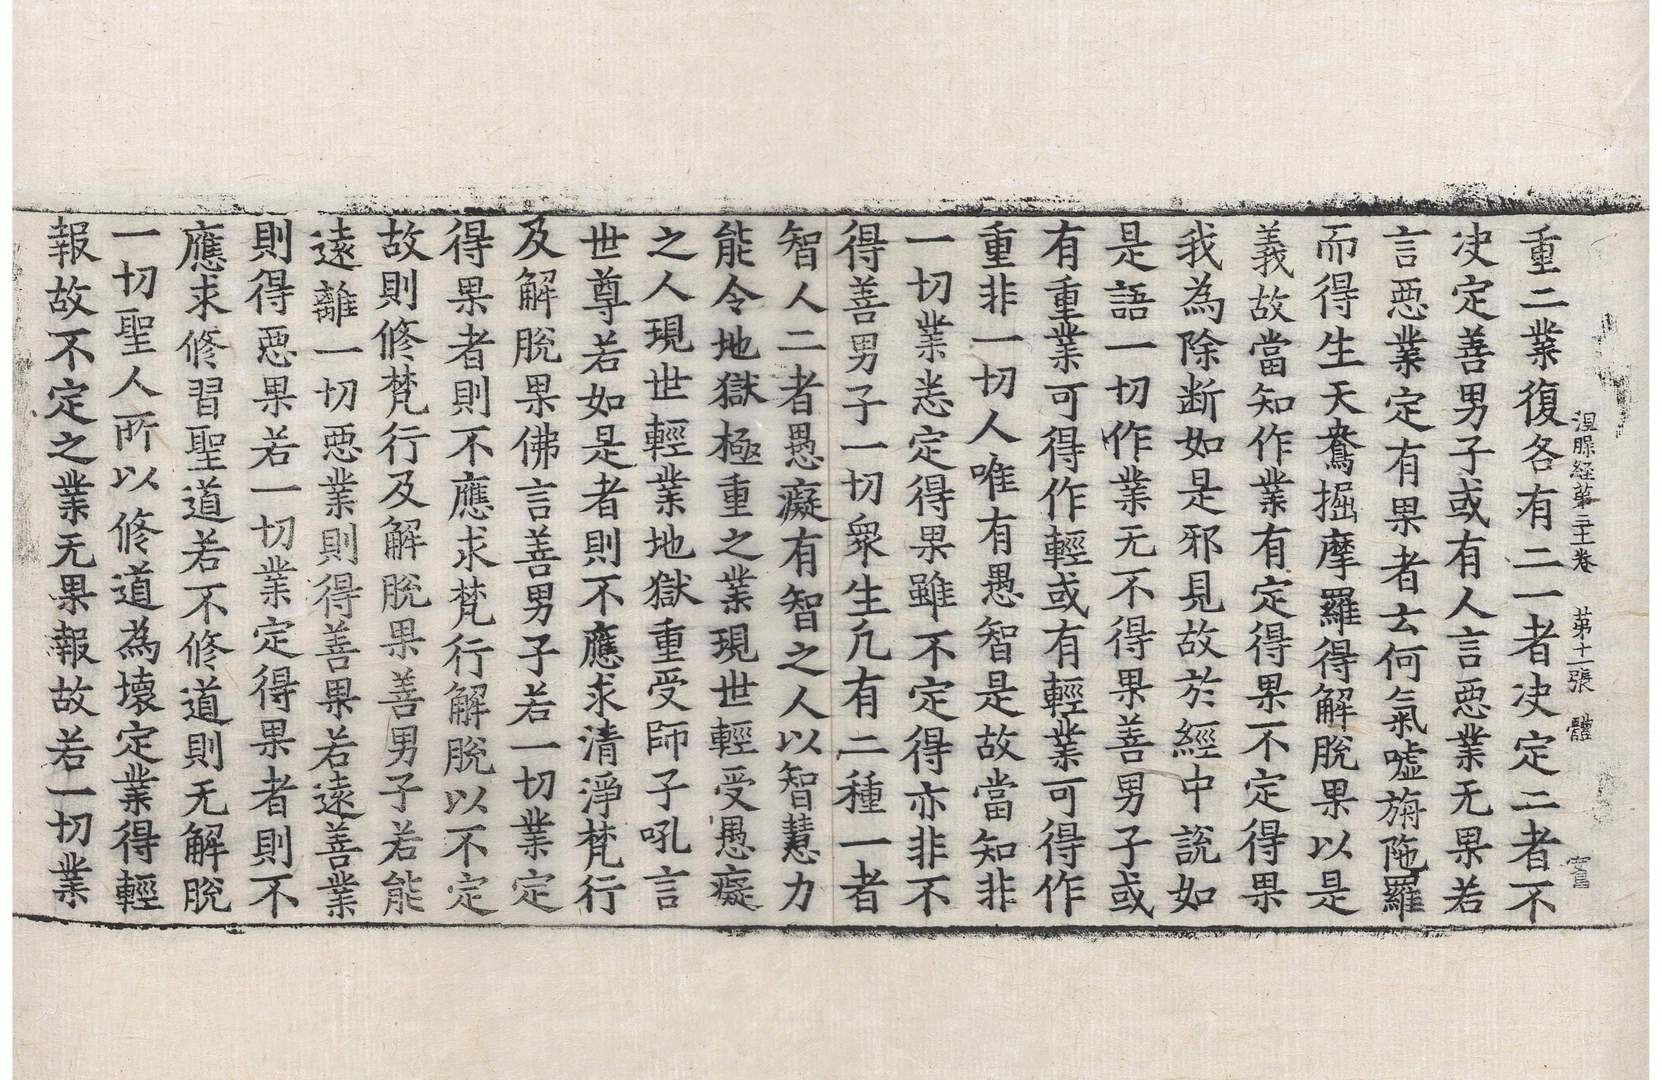 涅槃経苐三十一卷　苐十一張　體
重二業復各有二一者决定二者不
决定善男子或有人言惡業无果若
言惡業定有果者云何氣嘘旃陁羅
而得生天鴦掘摩羅得解脫果以是
義故當知作業有定得果不定得果
我為除断如是邪見故於經中說如
是語一切作業无不得果善男子或
有重業可得作輕或有輕業可得作
重非一切人唯有愚智是故當知非
一切業悉定得果雖不定得亦非不
得善男子一切衆生凢有二種一者
智人二者愚癡有智之人以智慧力
能令地獄極重之業現世輕受愚癡
之人現世輕業地獄重受師子吼言
世尊若如是者則不應求清淨梵行
及解脫果佛言善男子若一切業定
得果者則不應求梵行解脫以不定
故則修梵行及解脫果善男子若能
遠離一切惡業則得善果若遠善業
則得惡果若一切業定得果者則不
應求修習聖道若不修道則无解脫
一切聖人所以修道為壞定業得輕
報故不定之業无果報故若一切業